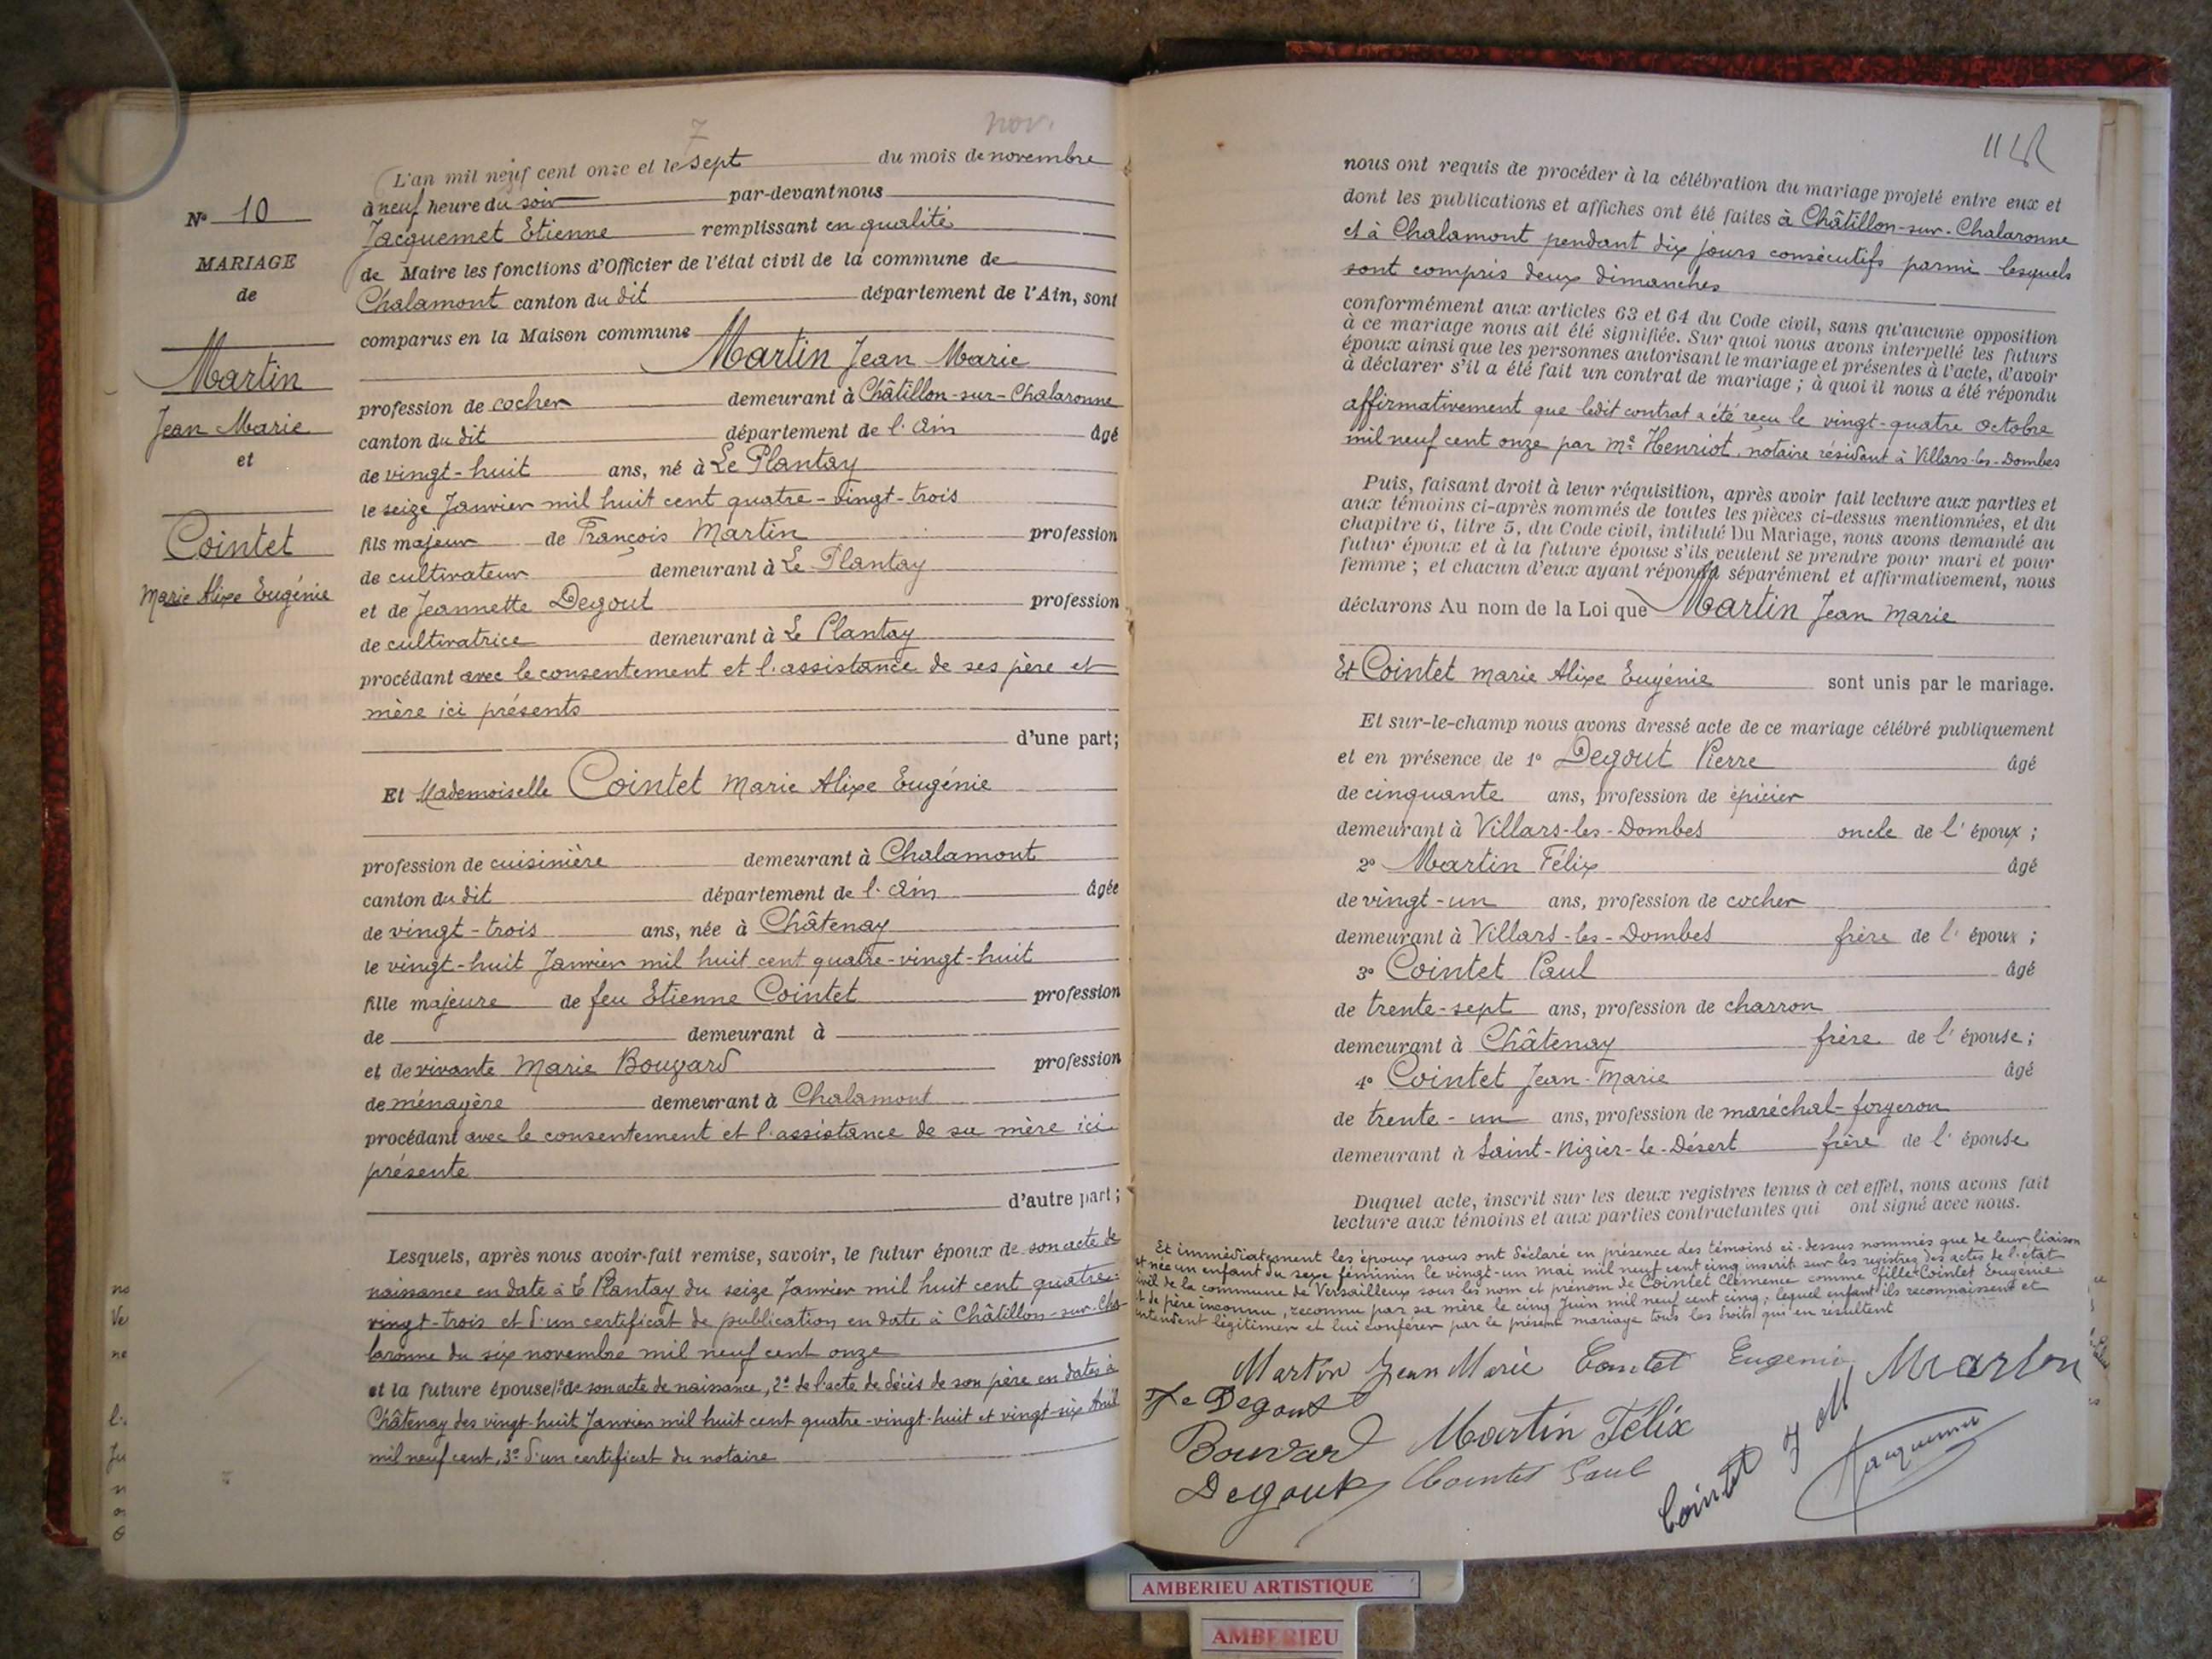 7 nov.
L'an mil neuf cent onze et le sept du mois de novembre
à neuf heure du soir par-devant nous
Jacquemet Etienne remplissant en qualité
de Maire les fonctions d'Officier de l'état civil de la commune de
Chalamont canton du dit département de l'Ain, sont
comparus en la Maison commune
Martin Jean Marie
profession de cocher demeurant à Châtillon-sur-Chalaronne
canton du dit département de l'Ain âgé
de vingt-huit ans, né à Le Plantay
le seize Janvier mil huit cent quatre-vingt-trois
fils majeur de François Martin profession
de cultivateur demeurant à Le Plantay
et de Jeannette Degout profession
de cultivatrice demeurant à Le Plantay
procédant avec le consentement et l'assistance de ses père et
mère ici présents
d'une part;
Et Mademoiselle Cointet Marie Alixe Eugénie
profession de cuisinière demeurant à Chalamont
canton du dit département de l'Ain âgée
de vingt-trois ans, née à Châtenay
le vingt-huit Janvier mil huit cent quatre-vingt-huit
fille majeure de feu Etienne Cointet profession
de demeurant à
et de vivante Marie Bouvard profession
de ménagère demeurant à Chalamont
procédant avec le consentement et l'assistance de sa mère ici
présente
d'autre part;
Lesquels, après nous avoir fait remise, savoir, le futur époux de son acte de
naissance en date à Le Plantay du seize Janvier mil huit cent quatre-
vingt-trois et d'un certificat de publication en date à Châtillon-sur-Cha-
laronne du six novembre mil neuf cent onze
et la future épouse 1º de son acte de naissance, 2º de l'acte de décès de son père en dates à
Châtenay des vingt-huit Janvier mil huit cent quatre-vingt-huit et vingt-six Avril
mil neuf cent, 3º d'un certificat du notaire
Nº 10
MARIAGE
de
Martin
Jean Marie
et
Cointet
Marie Alixe Eugénie
nous ont requis de procéder à la célébration du mariage projeté entre eux et
dont les publications et affiches ont été faites à Châtillon-sur-Chalaronne
et à Chalamont pendant dix jours consécutifs parmi lesquels
sont compris deux dimanches
conformément aux articles 63 et 64 du Code civil, sans qu'aucune opposition
à ce mariage nous ait été signifiée. Sur quoi nous avons interpellé les futurs
époux ainsi que les personnes autorisant le mariage et présentes à l'acte, d'avoir
à déclarer s'il a été fait un contrat de mariage ; à quoi il nous a été répondu
affirmativement que ledit contrat a été reçu le vingt-quatre octobre
mil neuf cent onze par Me Henriot, notaire résidant à Villars-les-Dombes
Puis, faisant droit à leur réquisition, après avoir fait lecture aux parties et
aux témoins ci-après nommés de toutes les pièces ci-dessus mentionnées, et du
chapitre 6, titre 5, du Code civil, intitulé Du Mariage, nous avons demandé au
futur époux et à la future épouse s'ils veulent se prendre pour mari et pour
femme ; et chacun d'eux ayant répondu séparément et affirmativement, nous
déclarons Au nom de la Loi que Martin Jean Marie
Et Cointet Marie Alixe Eugénie sont unis par le mariage.
Et sur-le-champ nous avons dressé acte de ce mariage célébré publiquement
et en présence de 1º Degout Pierre âgé
de cinquante ans, profession de épicier
demeurant à Villars-les-Dombes oncle de l'époux ;
2º Martin Félix âgé
de vingt-un ans, profession de cocher
demeurant à Villars-les-Dombes frère de l'époux ;
3º Cointet Paul âgé
de trente-sept ans, profession de charron
demeurant à Châtenay frère de l'épouse ;
4º Cointet Jean-Marie âgé
de trente-un ans, profession de maréchal-forgeron
demeurant à Saint-Nizier-le-Désert frère de l'épouse
Duquel acte, inscrit sur les deux registres tenus à cet effet, nous avons fait
lecture aux témoins et aux parties contractantes qui ont signé avec nous.
Et immédiatement les époux nous ont déclaré en présence des témoins ci-dessus nommés que de leur liaison
est née un enfant du sexe féminin le vingt-un mai mil neuf cent cinq inscrit sur les registres des actes de l'état
civil de la commune de Versailleux sous les nom et prénom de Cointet Clémence comme fille Cointet Eugénie
et de père inconnu, reconnu par sa mère le cinq Juin mil neuf cent cinq ; lequel enfant ils reconnaissent et
entendent légitimer et lui conférer par le présent mariage tous les droits qui en résultent
Martin Jean Marie Cointet Eugénie Martin
Je Degout
Bouvard Martin Félix
Degout Cointet Paul
Cointet J M
Jacquemet
AMBERIEU ARTISTIQUE
AMBERIEU